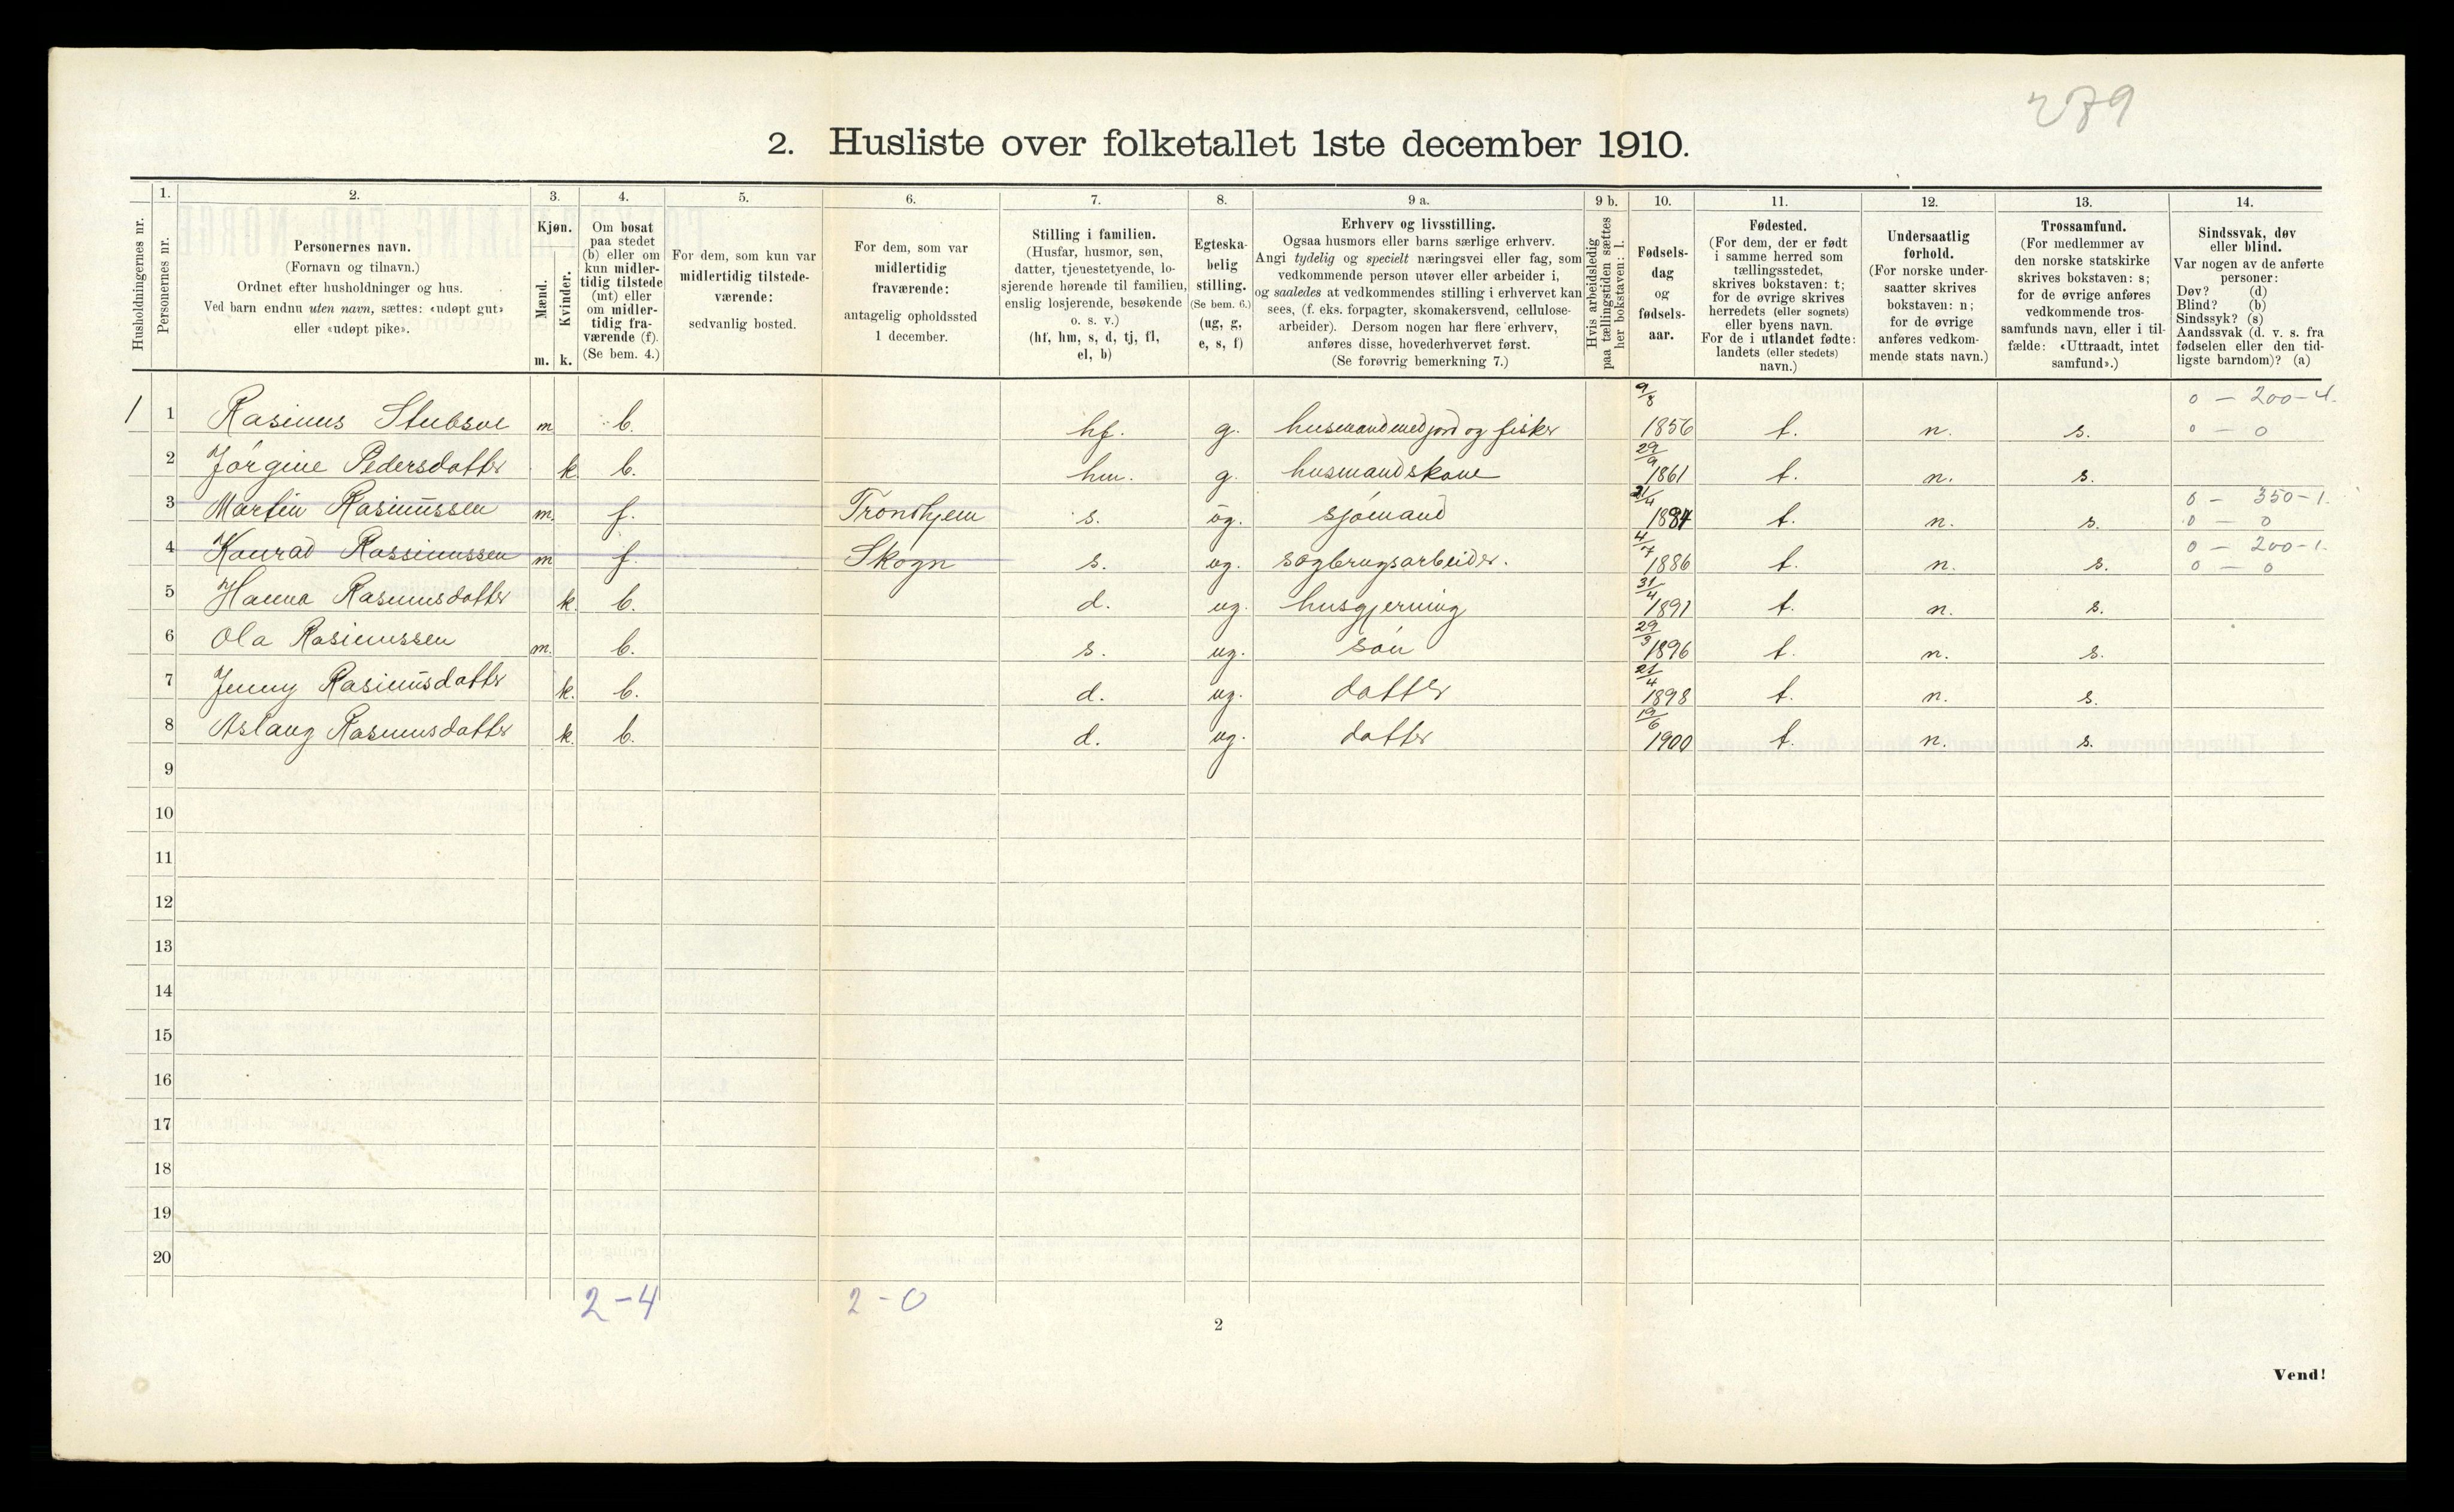 279
2. Husliste over folketallet 1ste december 1910.
Husholdningernes nr.
1.
Personernes nr.
2.
Personernes navn.
(Fornavn og tilnavn.)
Ordnet efter husholdninger og hus.
Ved barn endnu uten navn, sættes: «udøpt gut»
eller «udøpt pike».
3.
Kjøn.
Mænd.
Kvinder.
m. k.
4.
Om bosat
paa stedet
(b) eller om
kun midler-
tidig tilstede
(mt) eller
om midler-
tidig fra-
værende (f).
(Se bem. 4.)
5.
For dem, som kun var
midlertidig tilstede-
værende:
sedvanlig bosted.
6.
For dem, som var
midlertidig
fraværende:
antagelig opholdssted
1 december.
7.
Stilling i familien.
(Husfar, husmor, søn,
datter, tjenestetyende, lo-
sjerende hørende til familien,
enslig losjerende, besøkende
o. s. v.)
(hf, hm, s, d, tj, fl,
el, b)
8.
Egteska-
belig
stilling.
(Se bem. 6.)
(ug, g,
e, s, f)
9 a.
Erhverv og livsstilling.
Ogsaa husmors eller barns særlige erhverv.
Angi tydelig og specielt næringsvei eller fag, som
vedkommende person utøver eller arbeider i,
og saaledes at vedkommendes stilling i erhvervet kan
sees, (f. eks. forpagter, skomakersvend, cellulose-
arbeider). Dersom nogen har flere erhverv,
anføres disse, hovederhvervet først.
(Se forøvrig bemerkning 7.)
9 b.
Hvis arbeidsledig
paa tællingstiden sættes
her bokstaven: l.
10.
Fødsels-
dag
og
fødsels-
aar.
11.
Fødested.
(For dem, der er født
i samme herred som
tællingsstedet,
skrives bokstaven: t;
for de øvrige skrives
herredets (eller sognets)
eller byens navn.
For de i utlandet fødte:
landets (eller stedets)
navn.)
12.
Undersaatlig
forhold.
(For norske under-
saatter skrives
bokstaven: n;
for de øvrige
anføres vedkom-
mende stats navn.)
13.
Trossamfund.
(For medlemmer av
den norske statskirke
skrives bokstaven: s;
for de øvrige anføres
vedkommende tros-
samfunds navn, eller i til-
fælde: «Uttraadt, intet
samfund».)
14.
Sindssvak, døv
eller blind.
Var nogen av de anførte
personer:
Døv? (d)
Blind? (b)
Sindssyk? (s)
Aandssvak (d. v. s. fra
fødselen eller den tid-
ligste barndom)? (a)
1 1 Rasmus Stubsve m b. hf. g. husmand med jord og fisker 9/8 1856 t. n. s. 0 – 200 – 4. 0 – 0
2 Jörgine Pedersdatter k b. hm. g. husmandskone 29/9 1861 t. n. s.
3 Martin Rasmussen m. f. Trondhjem s. ug. sjömand 21/4 1884 t. n. s. 0 – 350 – 1. 0 – 0
4 Konrad Rassmussen m f. Skogn s. ug. sagbrugsarbeider. 4/7 1886 t. n. s. 0 – 200 – 1. 0 – 0
5 Hanna Rasmusdatter k. b. d. ug. husgjerning 31/4 1891 t. n. s.
6 Ola Rasmussen m. b. s. ug. sön 29/3 1896 t. n. s.
7 Jenny Rasmusdatter k. b. d. ug. datter 21/4 1898 t. n. s.
8 Aslaug Rasmusdatter k. b. d. ug. datter 19/6 1900 t. n. s.
9
10
11
12
13
14
15
16
17
18
19
20
2 – 4 2 – 0
2
Vend!